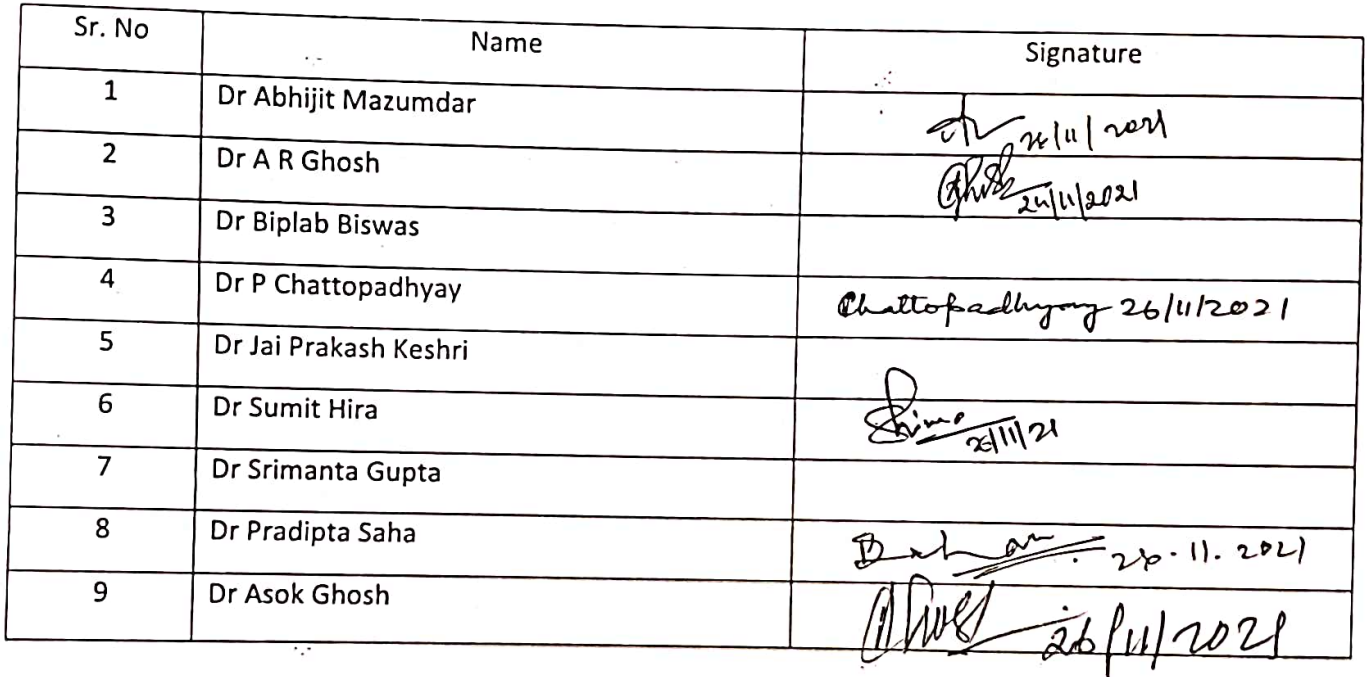 Sr. No Name Signature
1 Dr Abhijit Mazumdar 26/11/2021
2 Dr A R Ghosh Ghosh 26/11/2021
3 Dr Biplab Biswas
4 Dr P Chattopadhyay Chattopadhyay 26/11/2021
5 Dr Jai Prakash Keshri
6 Dr Sumit Hira 26/11/21
7 Dr Srimanta Gupta
8 Dr Pradipta Saha 26.11.2021
9 Dr Asok Ghosh 26/11/2021